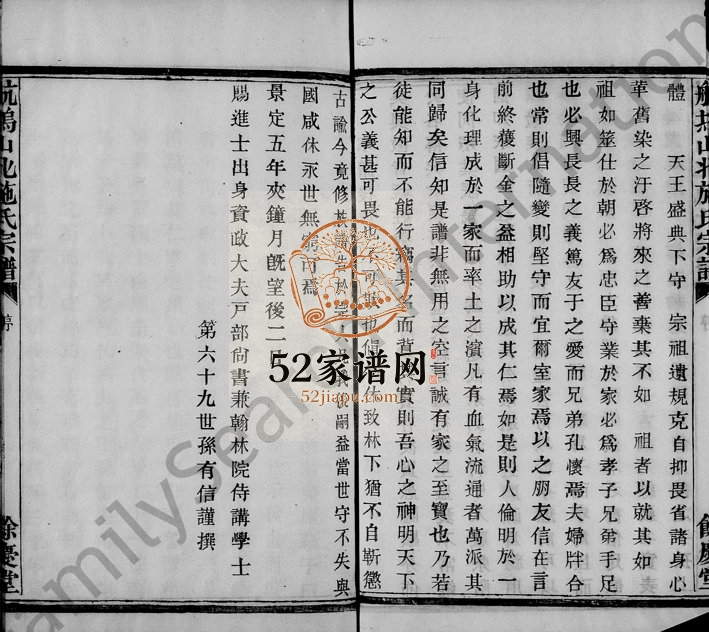 體　天王盛典下守　宗祖遺規克自抑畏省諸身心
革舊染之汙啓將來之善棄其不如　祖者以就其如
祖如筮仕於朝必為忠臣守業於家必為孝子兄弟手足
也必興長長之義篤友于之愛而兄弟孔懷焉夫婦牉合
也常則倡隨變則堅守而宜爾室家焉以之朋友信在言
前終獲斷金之益相助以成其仁焉如是則人倫明於一
身化理成於一家而率土之濱凡有血氣流通者萬派其
同歸矣信知是譜非無用之空言誠有家之至寶也乃若
徒能知而不能行竊其名而背實則吾心之神明天下
之公義甚可畏也不可也休致林下猶不自靳懲
古諭今竟修於宗嗣益當世守不失與
國咸休永世無窮焉
景定五年夾鐘月既望後二
賜進士出身資政大夫戶部尚書兼翰林院侍講學士
第六十九世孫有信謹撰
航塢山北施氏宗譜
序
餘慶堂
航塢山北施氏宗譜
餘慶堂
52家谱网
52jiapu.com
FamilySearch International